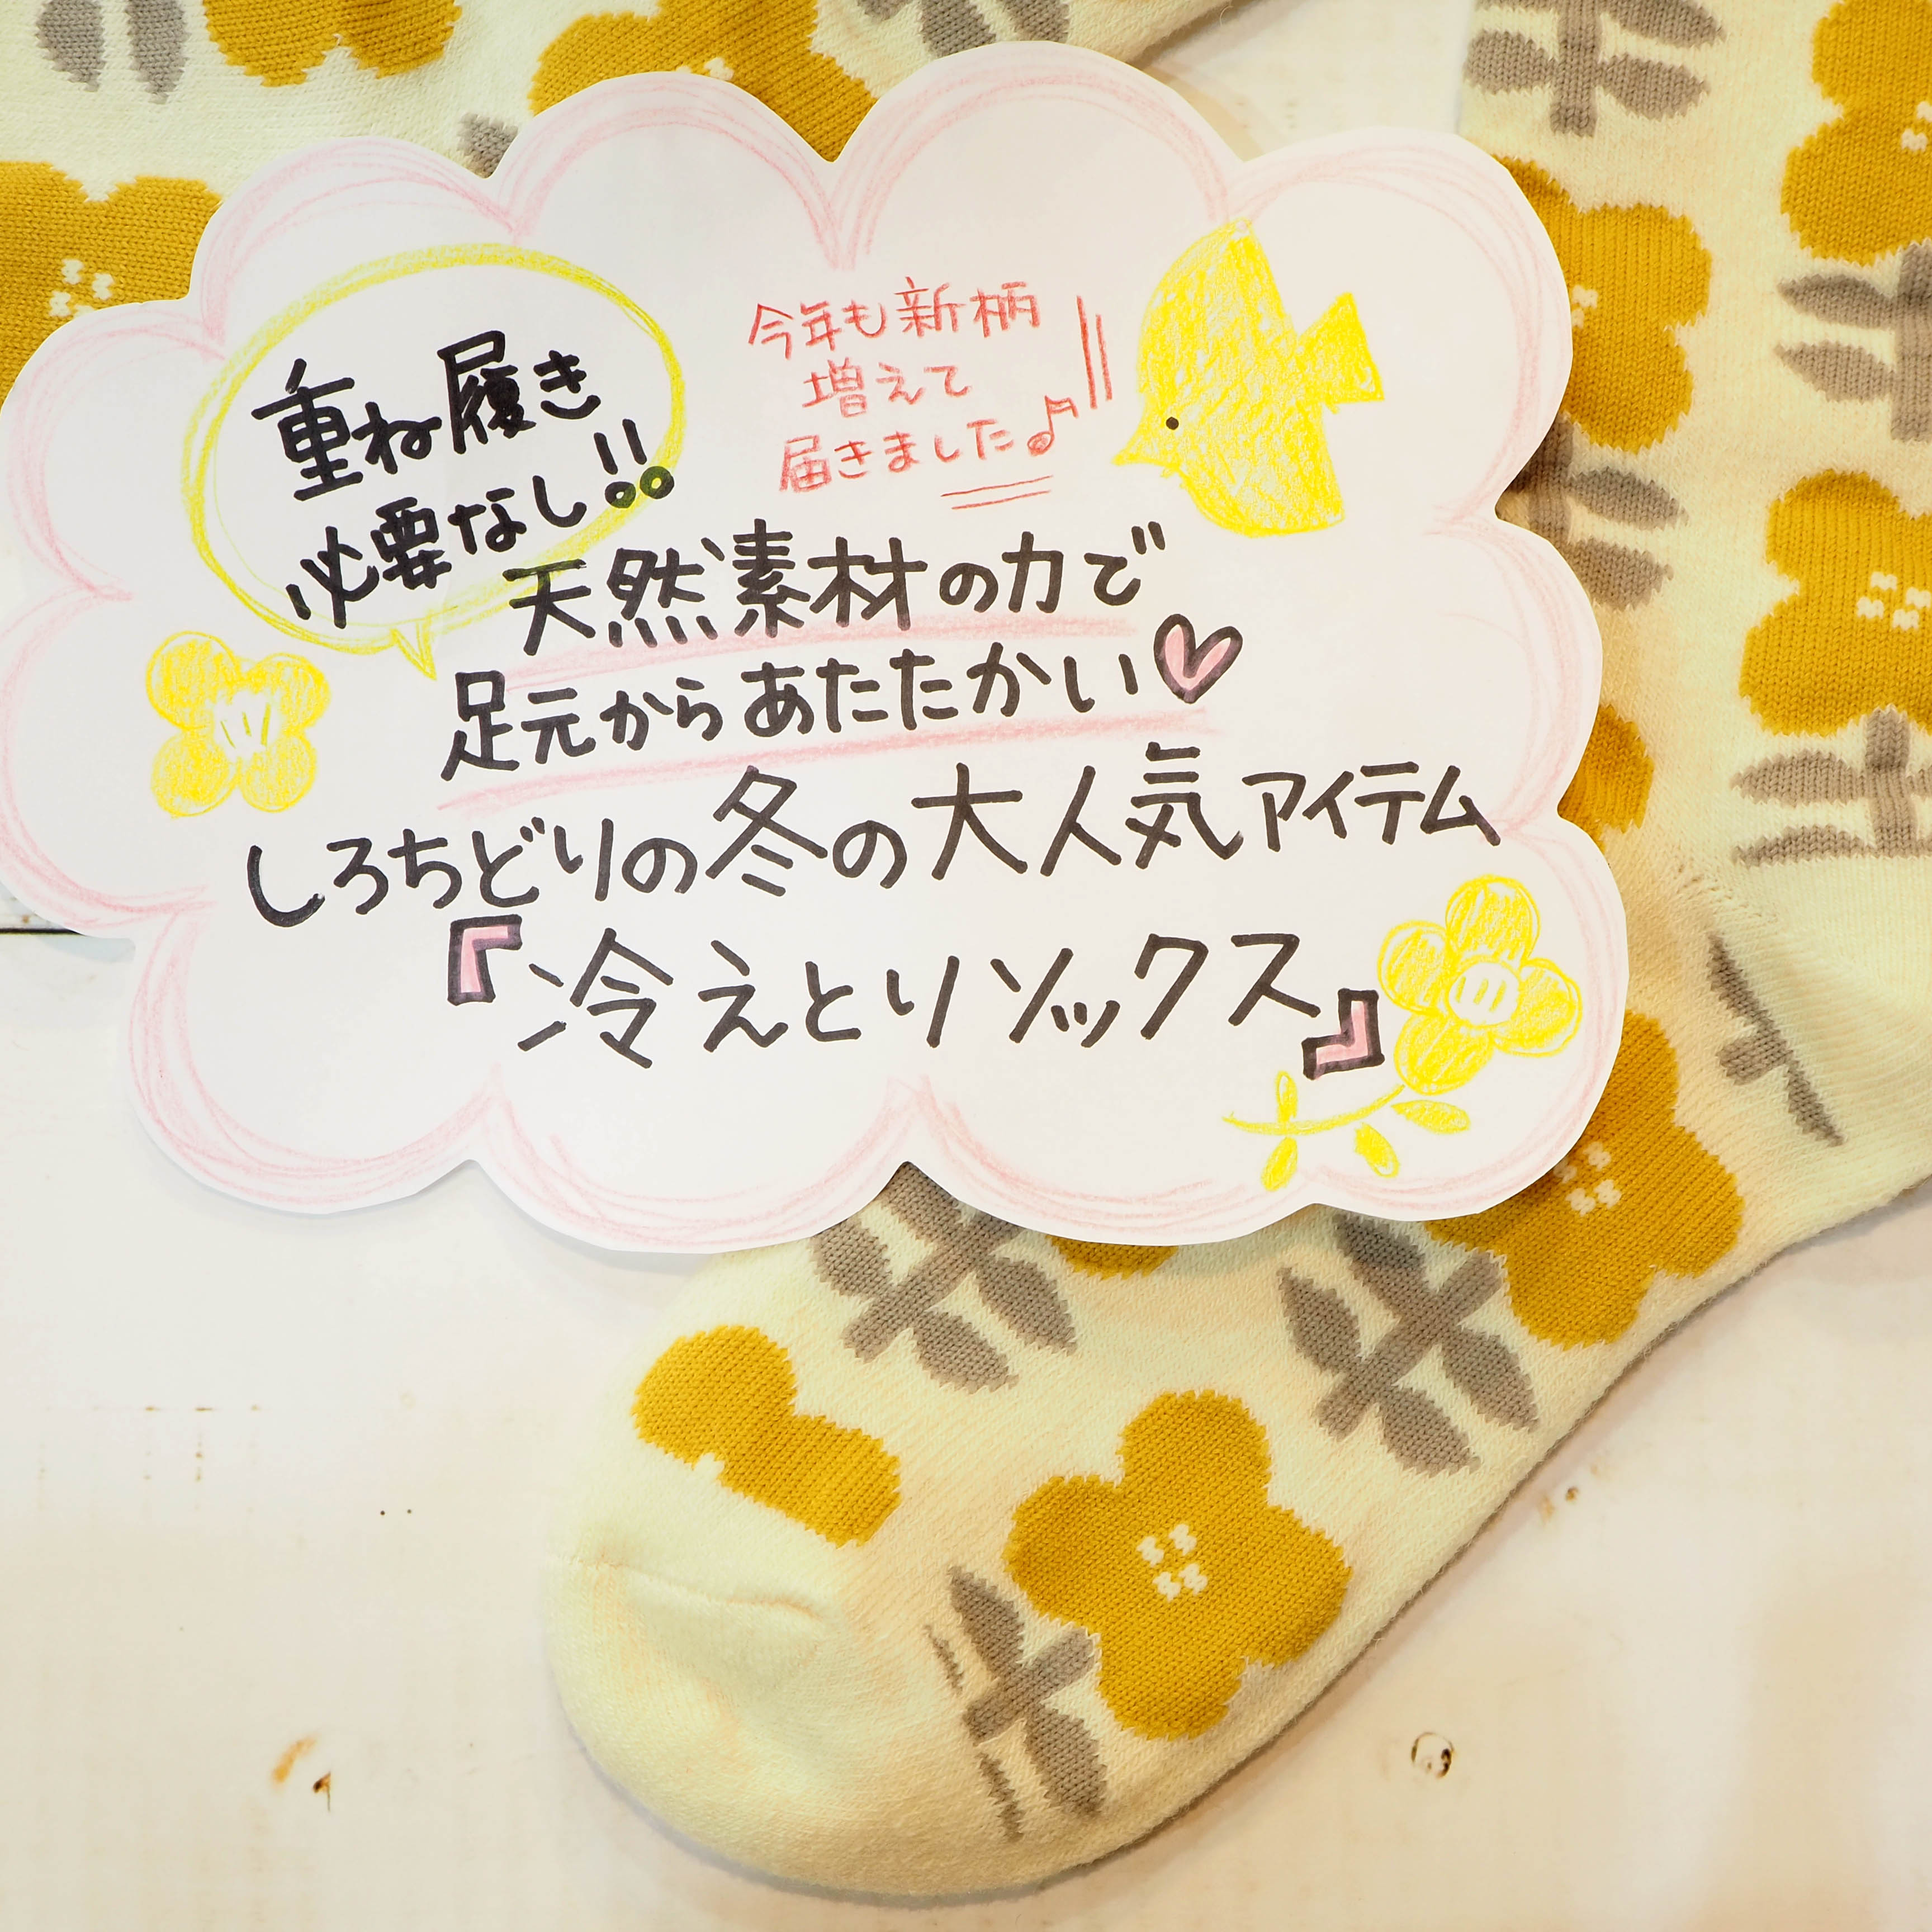 重ね履き
必要なし!!
今年も新柄
増えて
届きました♪
天然素材の力で
足元からあたたかい♡
しろちどりの冬の大人気アイテム
『冷えとりソックス』